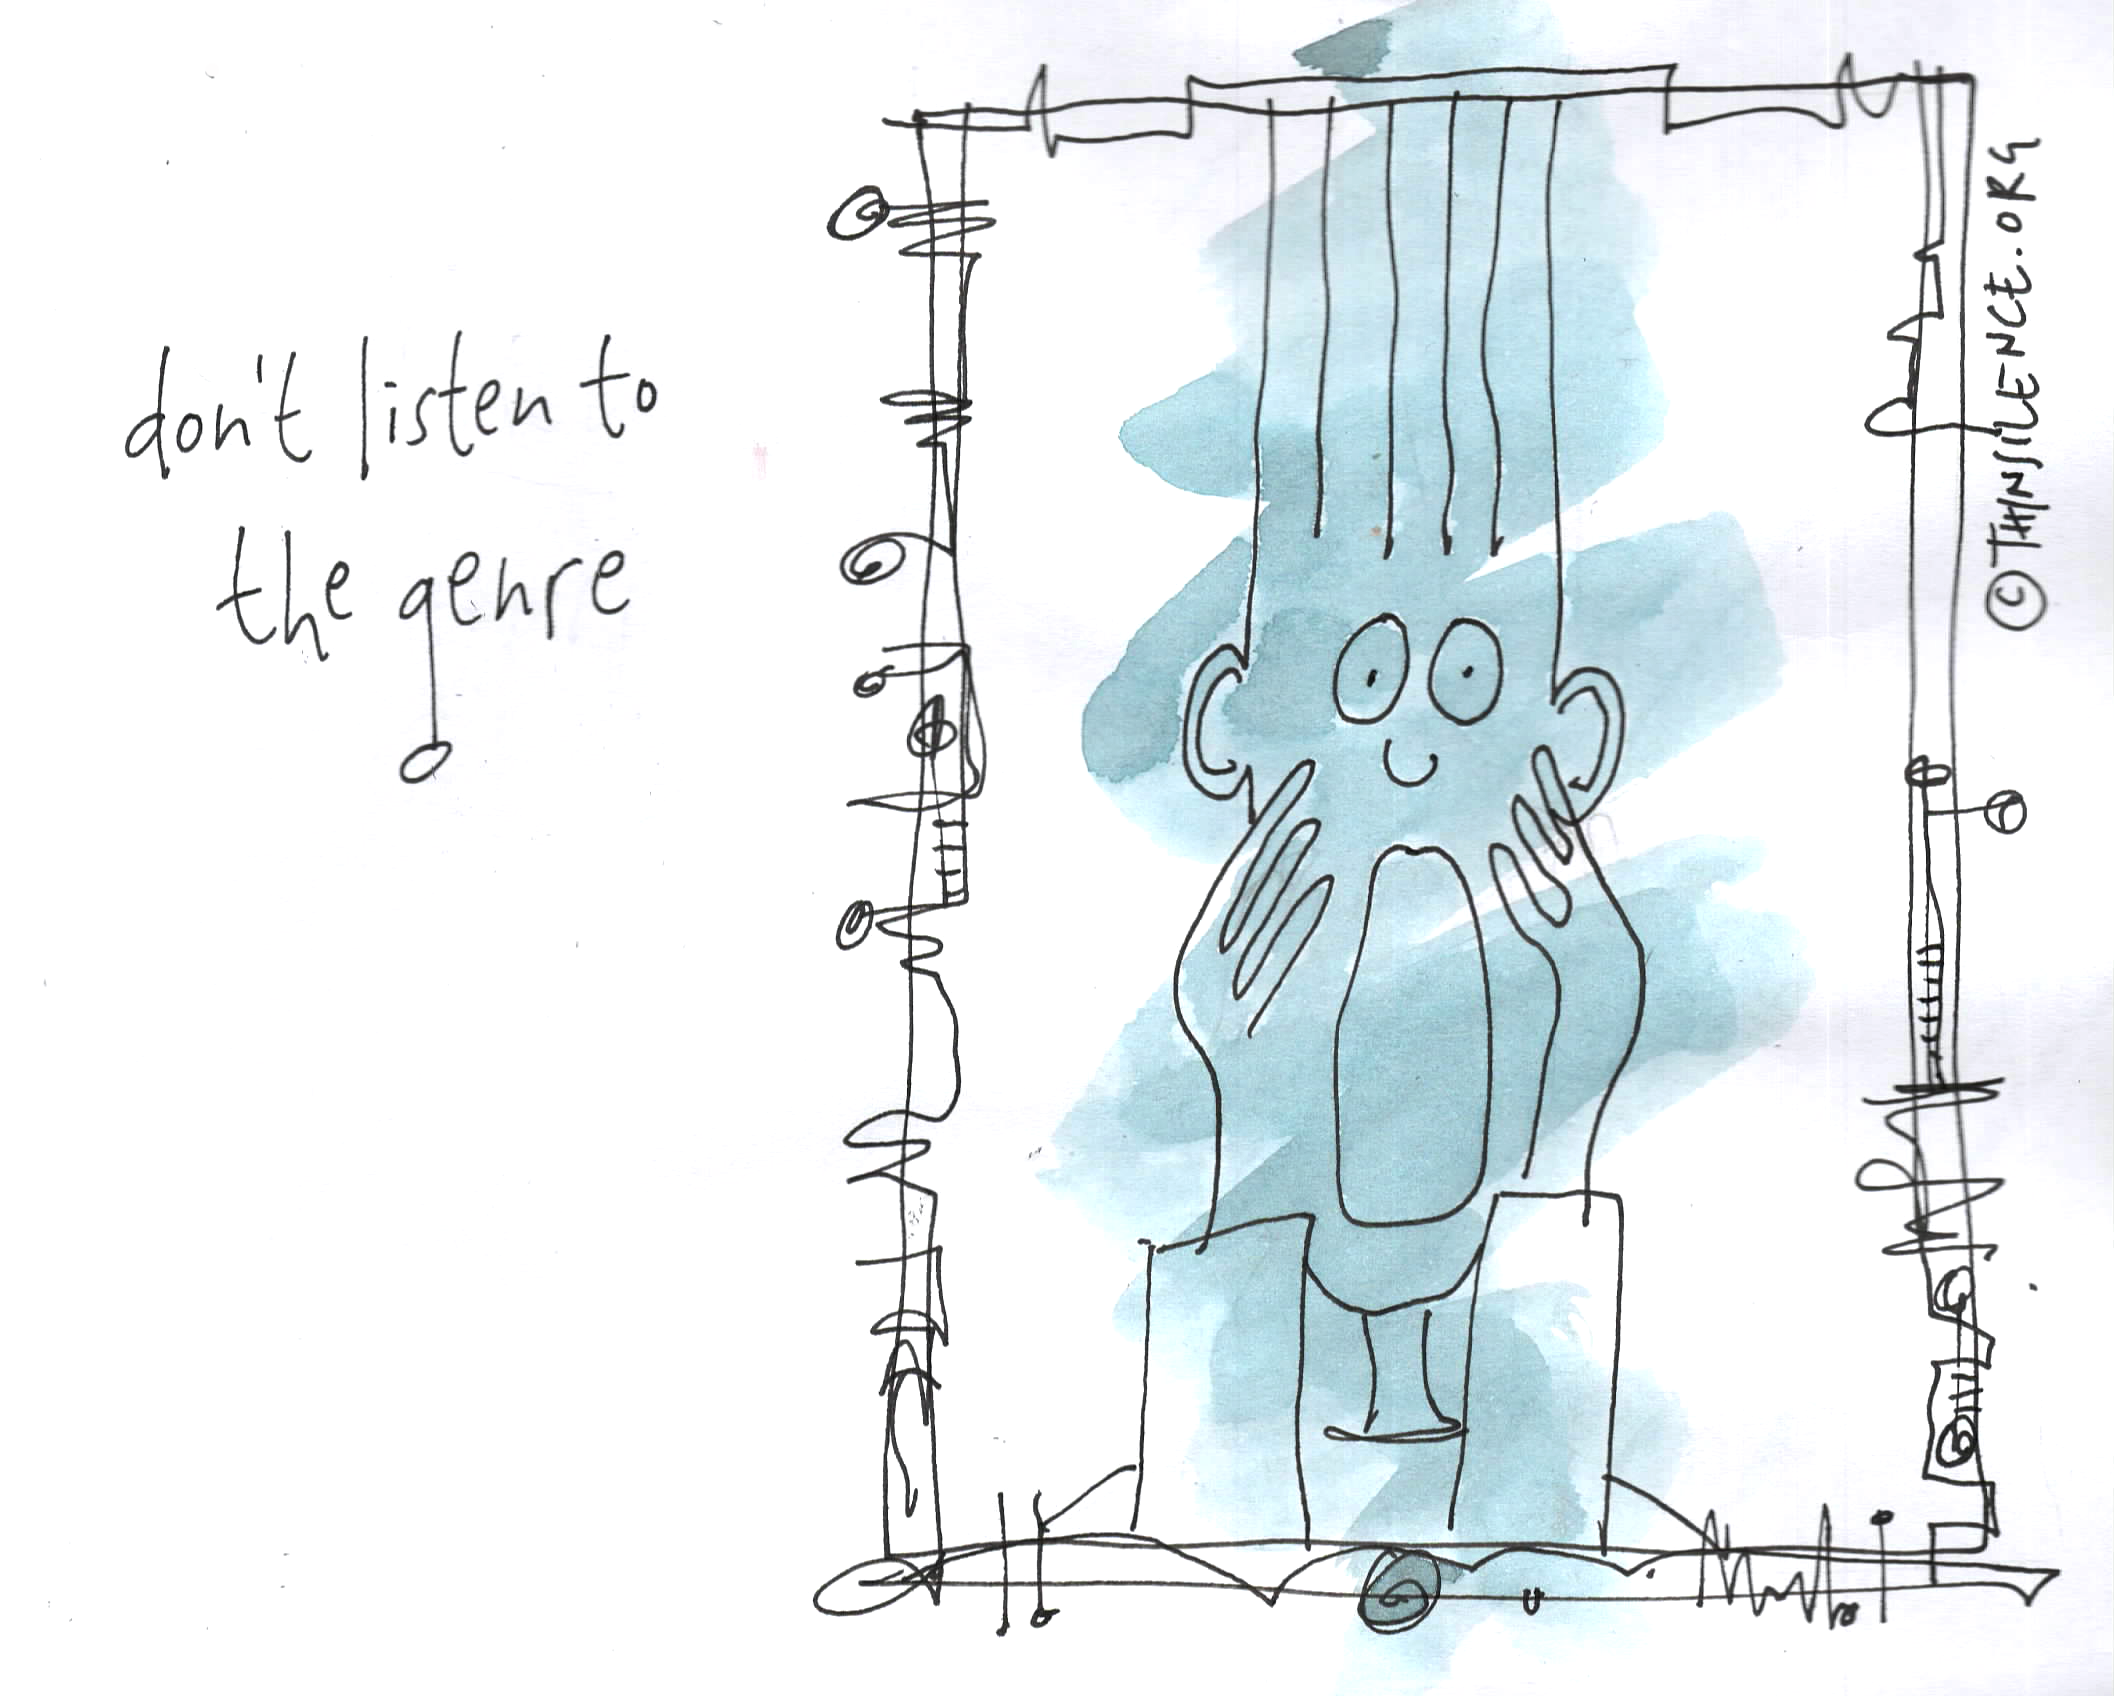 don't listen to
the genre
© THINSILENCE.ORG